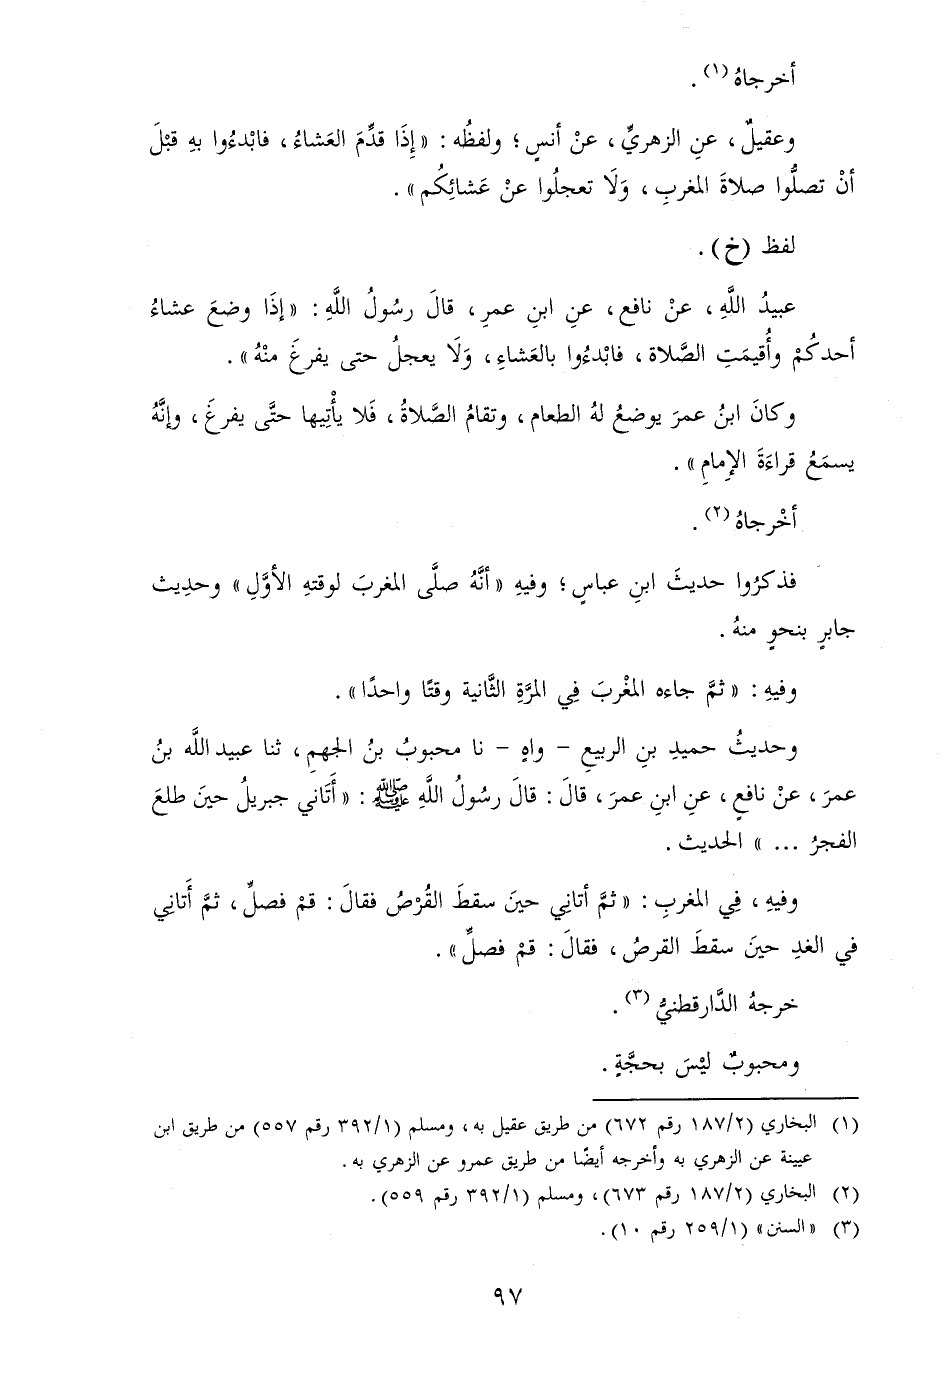 أخرجاهُ (١) .
وعقيلٌ ، عنِ الزهريِّ ، عنْ أنسٍ ؛ ولفظُه : « إِذَا قدِّمَ العَشاءُ ، فابْدءُوا بهِ قبْلَ
أنْ تصلُّوا صلاةَ المغربِ ، وَلَا تعجلُوا عنْ عَشائِكُم » .
لفظ (خ) .
عبيدُ اللَّهِ ، عنْ نافع ، عنِ ابنِ عمرِ ، قالَ رسُولُ اللَّهِ : « إذَا وضعَ عشاءُ
أحدكُمْ وأُقيمَتِ الصَّلاة ، فابْدءُوا بالعَشاءِ ، وَلَا يعجلُ حتى يفرغَ منْهُ » .
وكانَ ابنُ عمرَ يوضعُ لهُ الطعام ، وتقامُ الصَّلاةُ ، فَلا يأْتِيها حتَّى يفرغَ ، وإنَّهُ
يسمَعُ قراءَةَ الإِمامِ » .
أخْرجاهُ (٢) .
فذكرُوا حديثَ ابنِ عباسٍ ؛ وفيهِ « أنَّهُ صلَّى المغربَ لوقتهِ الأوَّلِ » وحدِيث
جابرٍ بنحوٍ منهُ .
وفيهِ : « ثمَّ جاءه المغْربَ فِي المرَّةِ الثَّانية وقتًا واحدًا » .
وحديثُ حميدِ بنِ الربيعِ - واهٍ - نا محبوبُ بنُ الجهمِ ، ثنا عبيد اللَّه بنُ
عمرَ ، عنْ نافعٍ ، عنِ ابنِ عمرَ ، قالَ : قالَ رسُولُ اللَّهِ ﷺ : « أَتَاني جبريلُ حينَ طلعَ
الفجرُ ... » الحديث .
وفيهِ ، فِي المغربِ : « ثمَّ أتانِي حينَ سقطَ القُرْصُ فقالَ : قمْ فصلِّ ، ثمَّ أَتانِي
في الغدِ حينَ سقطَ القرصُ ، فقالَ : قمْ فصلِّ » .
خرجهُ الدَّارقطنيُّ (٣) .
ومحبوبٌ ليْسَ بحجَّةٍ .
(١) البخاري (١٨٧/٢ رقم ٦٧٢) من طريق عقيل به ، ومسلم (٣٩٢/١ رقم ٥٥٧) من طريق ابن
عيينة عن الزهري به وأخرجه أيضًا من طريق عمرو عن الزهري به .
(٢) البخاري (١٨٧/٢ رقم ٦٧٣) ، ومسلم (٣٩٢/١ رقم ٥٥٩) .
(٣) «السنن» (٢٥٩/١ رقم ١٠) .
٩٧